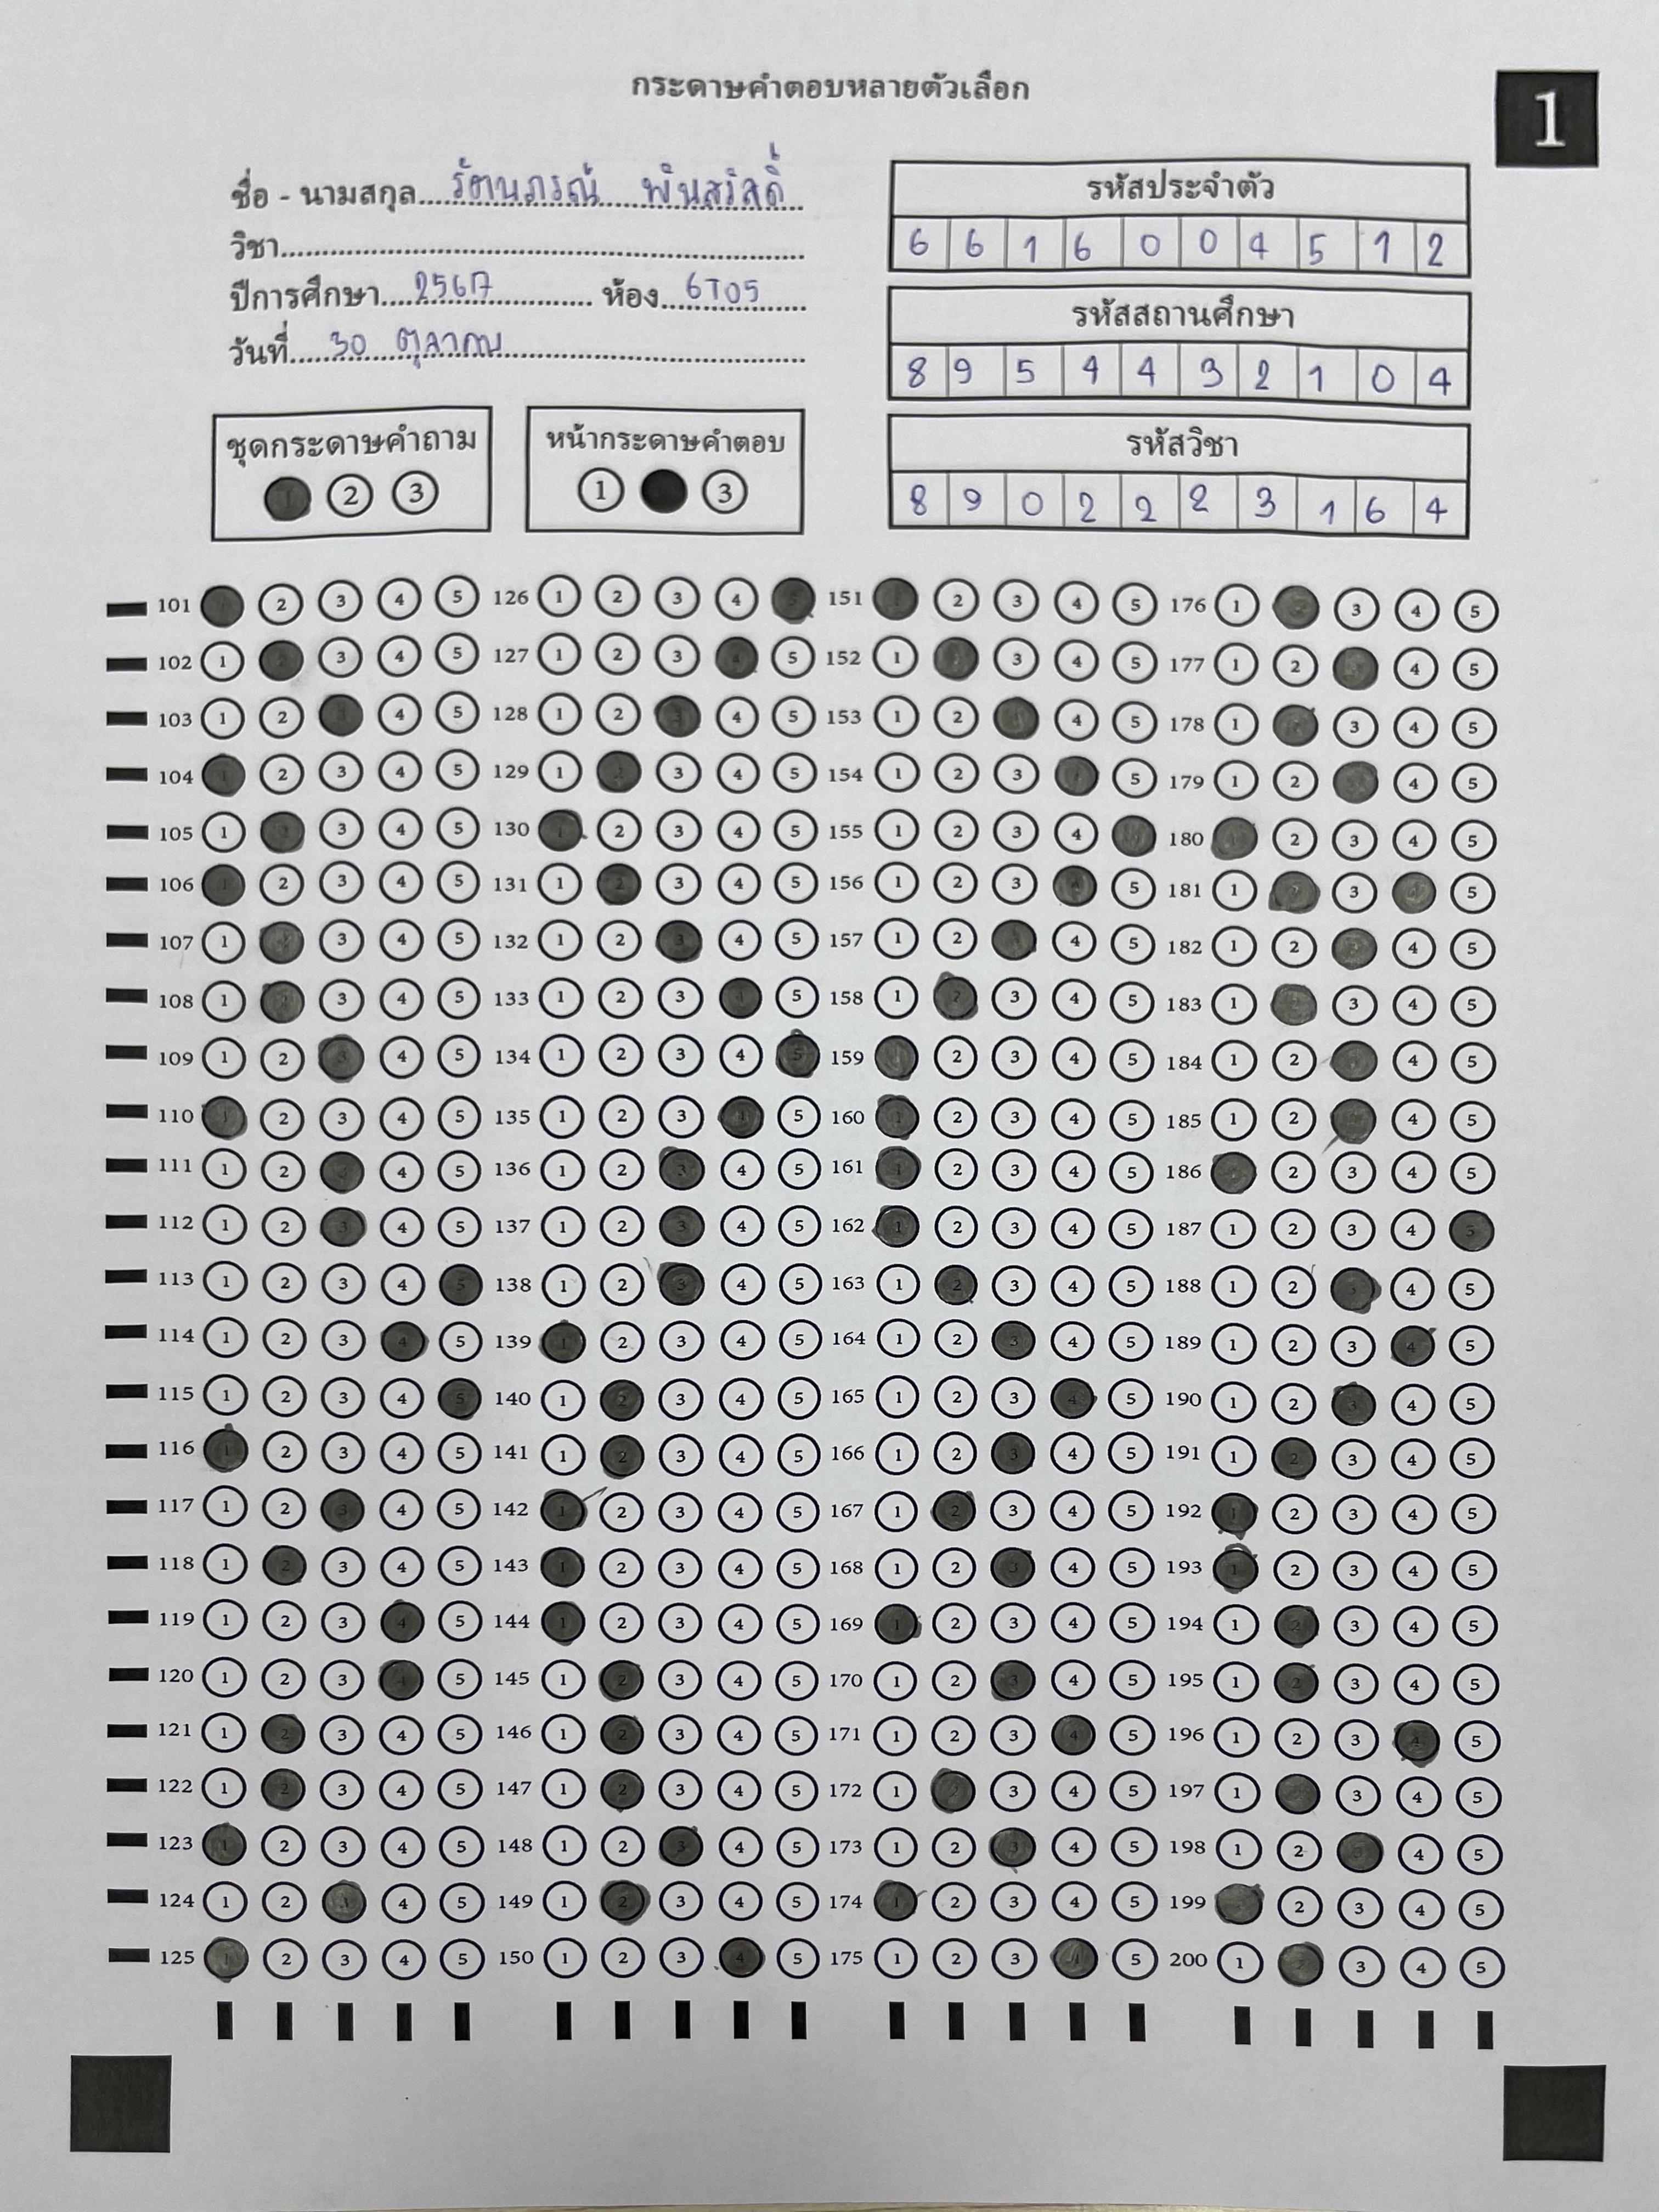 กระดาษคำตอบหลายตัวเลือก
1
ชื่อ - นามสกุล รัตนภรณ์ พันสวัสดิ์
วิชา
ปีการศึกษา 2567 ห้อง 6T05
วันที่ 30 ตุลาคม
รหัสประจำตัว
6 6 1 6 0 0 4 5 1 2
รหัสสถานศึกษา
8 9 5 4 4 3 2 1 0 4
รหัสวิชา
8 9 0 2 2 2 3 1 6 4
ชุดกระดาษคำถาม
1 2 3
หน้ากระดาษคำตอบ
1 3
101 1 2 3 4 5 126 1 2 3 4 5 151 1 2 3 4 5 176 1 2 3 4 5
102 1 2 3 4 5 127 1 2 3 4 5 152 1 2 3 4 5 177 1 2 3 4 5
103 1 2 3 4 5 128 1 2 3 4 5 153 1 2 3 4 5 178 1 2 3 4 5
104 1 2 3 4 5 129 1 2 3 4 5 154 1 2 3 4 5 179 1 2 3 4 5
105 1 2 3 4 5 130 1 2 3 4 5 155 1 2 3 4 5 180 1 2 3 4 5
106 1 2 3 4 5 131 1 2 3 4 5 156 1 2 3 4 5 181 1 2 3 4 5
107 1 2 3 4 5 132 1 2 3 4 5 157 1 2 3 4 5 182 1 2 3 4 5
108 1 2 3 4 5 133 1 2 3 4 5 158 1 2 3 4 5 183 1 2 3 4 5
109 1 2 3 4 5 134 1 2 3 4 5 159 1 2 3 4 5 184 1 2 3 4 5
110 1 2 3 4 5 135 1 2 3 4 5 160 1 2 3 4 5 185 1 2 3 4 5
111 1 2 3 4 5 136 1 2 3 4 5 161 1 2 3 4 5 186 1 2 3 4 5
112 1 2 3 4 5 137 1 2 3 4 5 162 1 2 3 4 5 187 1 2 3 4 5
113 1 2 3 4 5 138 1 2 3 4 5 163 1 2 3 4 5 188 1 2 3 4 5
114 1 2 3 4 5 139 1 2 3 4 5 164 1 2 3 4 5 189 1 2 3 4 5
115 1 2 3 4 5 140 1 2 3 4 5 165 1 2 3 4 5 190 1 2 3 4 5
116 1 2 3 4 5 141 1 2 3 4 5 166 1 2 3 4 5 191 1 2 3 4 5
117 1 2 3 4 5 142 1 2 3 4 5 167 1 2 3 4 5 192 1 2 3 4 5
118 1 2 3 4 5 143 1 2 3 4 5 168 1 2 3 4 5 193 1 2 3 4 5
119 1 2 3 4 5 144 1 2 3 4 5 169 1 2 3 4 5 194 1 2 3 4 5
120 1 2 3 4 5 145 1 2 3 4 5 170 1 2 3 4 5 195 1 2 3 4 5
121 1 2 3 4 5 146 1 2 3 4 5 171 1 2 3 4 5 196 1 2 3 4 5
122 1 2 3 4 5 147 1 2 3 4 5 172 1 2 3 4 5 197 1 2 3 4 5
123 1 2 3 4 5 148 1 2 3 4 5 173 1 2 3 4 5 198 1 2 3 4 5
124 1 2 3 4 5 149 1 2 3 4 5 174 1 2 3 4 5 199 1 2 3 4 5
125 1 2 3 4 5 150 1 2 3 4 5 175 1 2 3 4 5 200 1 2 3 4 5